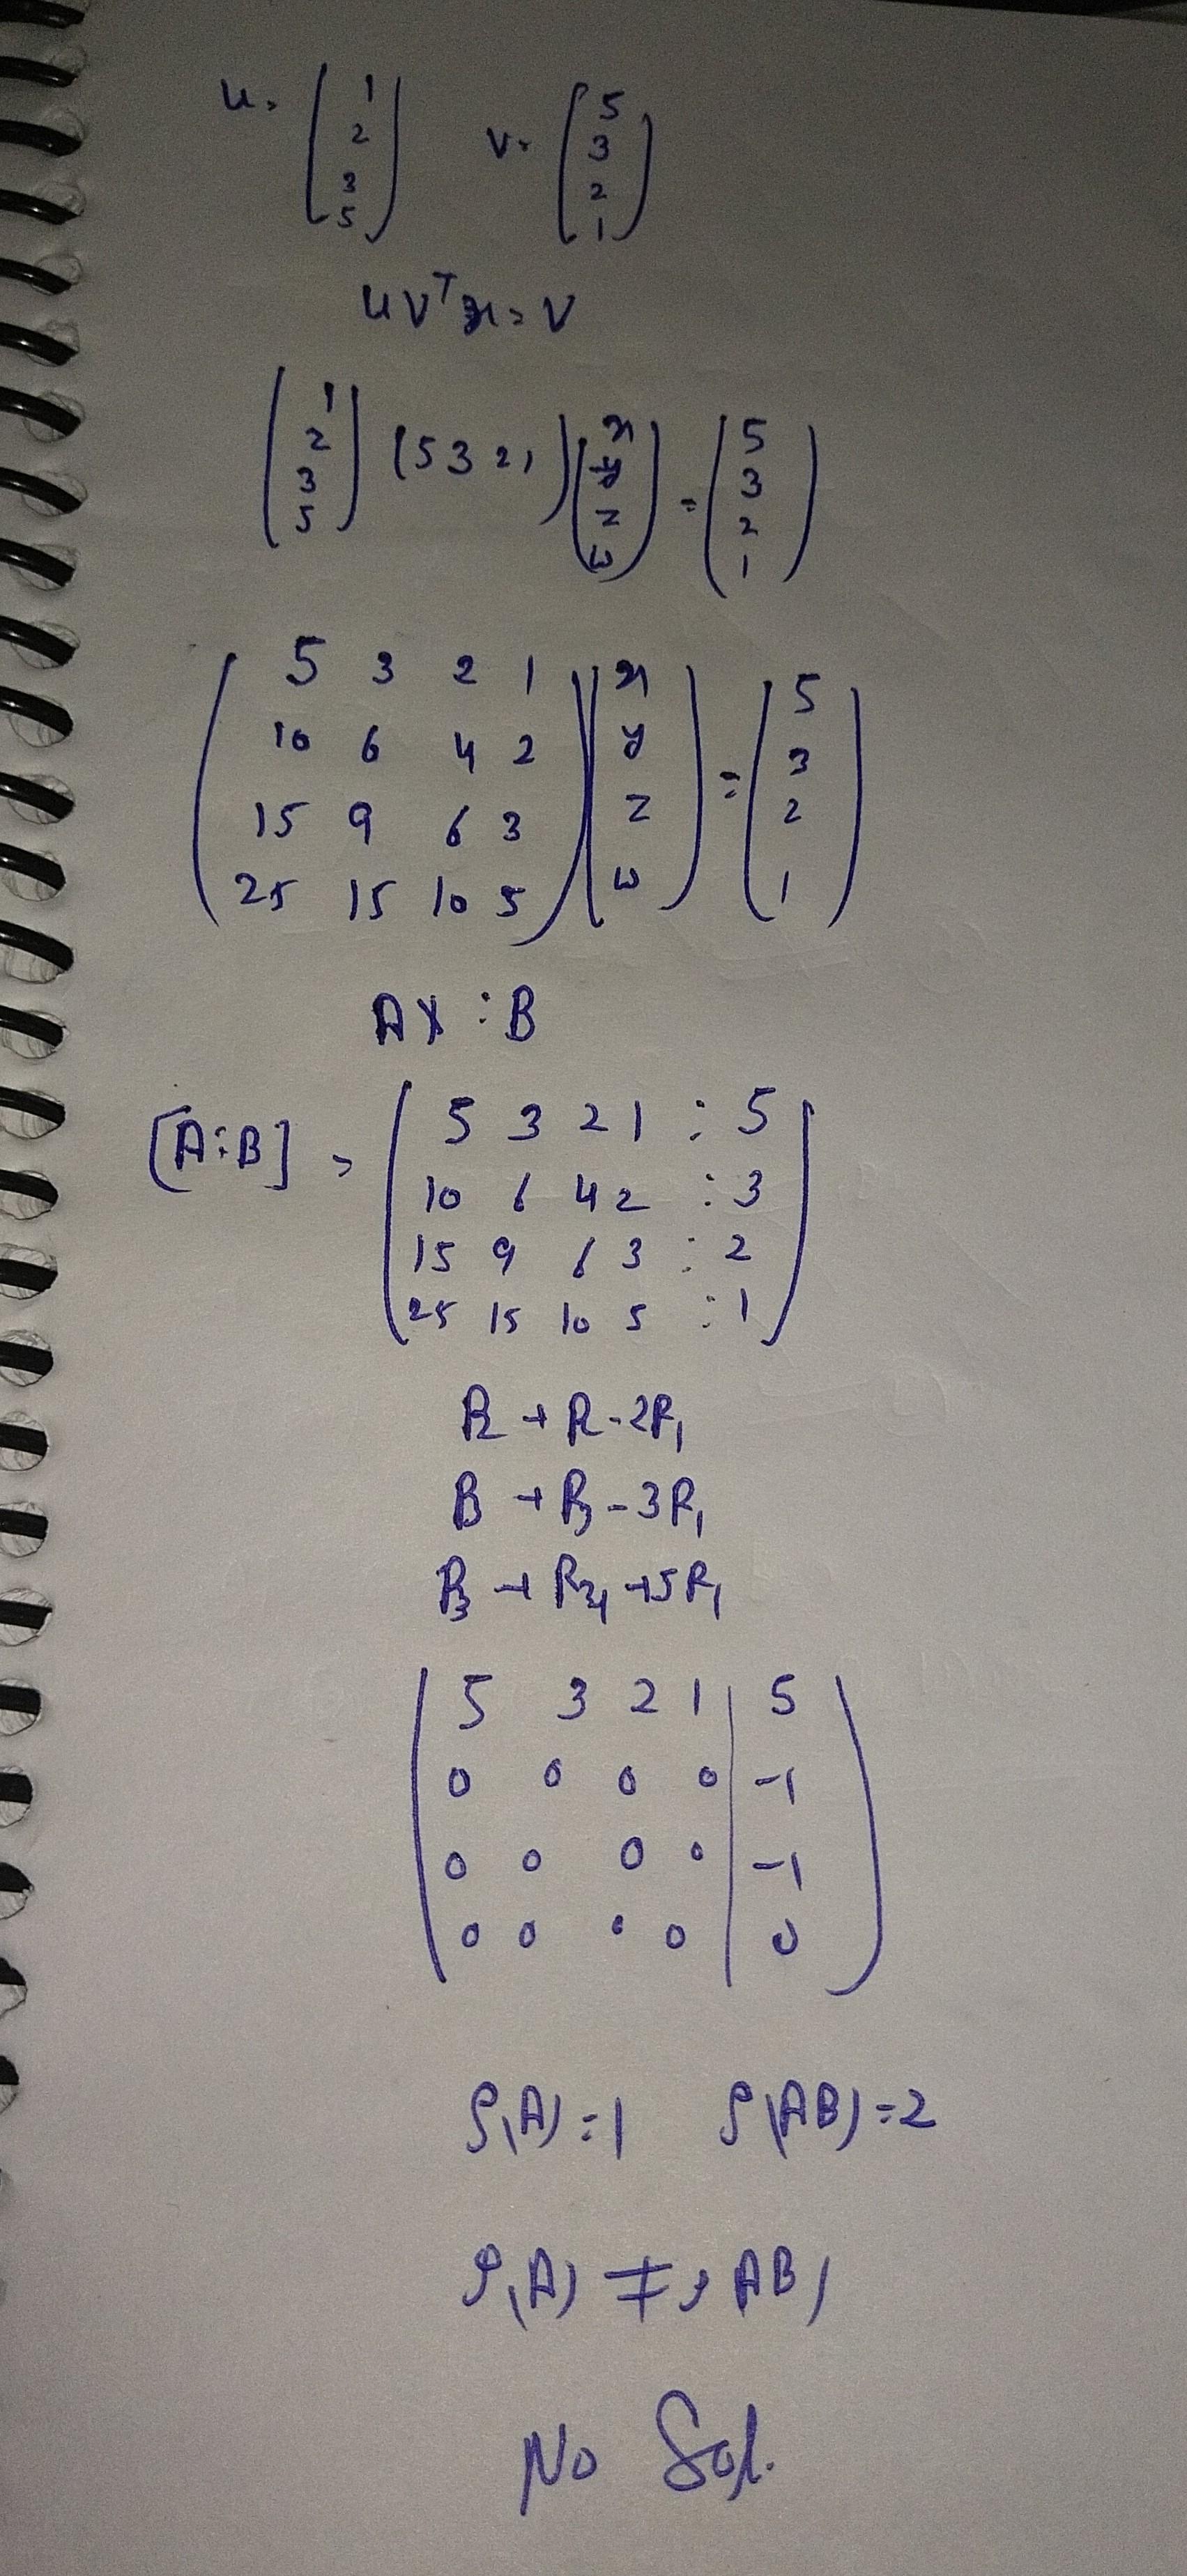 u = (1 2 3 5) v = (5 3 2 1)
uvᵀx = v
(1 2 3 5) (5 3 2 1) (x y z w) = (5 3 2 1)
(5 3 2 1) (x) = (5)
(10 6 4 2) (y) (3)
(15 9 6 3) (z) (2)
(25 15 10 5) (w) (1)
AX = B
[A:B] = (5 3 2 1 : 5)
(10 6 4 2 : 3)
(15 9 6 3 : 2)
(25 15 10 5 : 1)
R₂ → R - 2R₁
R → R₃ - 3R₁
R₃ → +5R₁
(5 3 2 1 | 5)
(0 0 0 0 | -1)
(0 0 0 0 | -1)
(0 0 0 0 | 0)
ρ(A) = 1 ρ(AB) = 2
ρ(A) ≠ ρ AB)
No Sol.